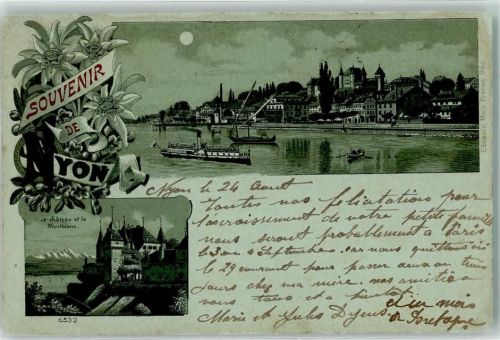 SOUVENIR
DE
NYON
Le château et le
Montblanc.
6532
Nyon le 24 Aout
Toutes nos félicitations pour
l'accroissement de votre petite famille
nous seront probablement à Paris
le 3 ou 4 Septembre car nous quittons ici
le 29 courant pour passer deux ou trois
jours chez ma mère. nos amitiés
vous tous et à bientôt
Marie et Jules
mois
Bretagne